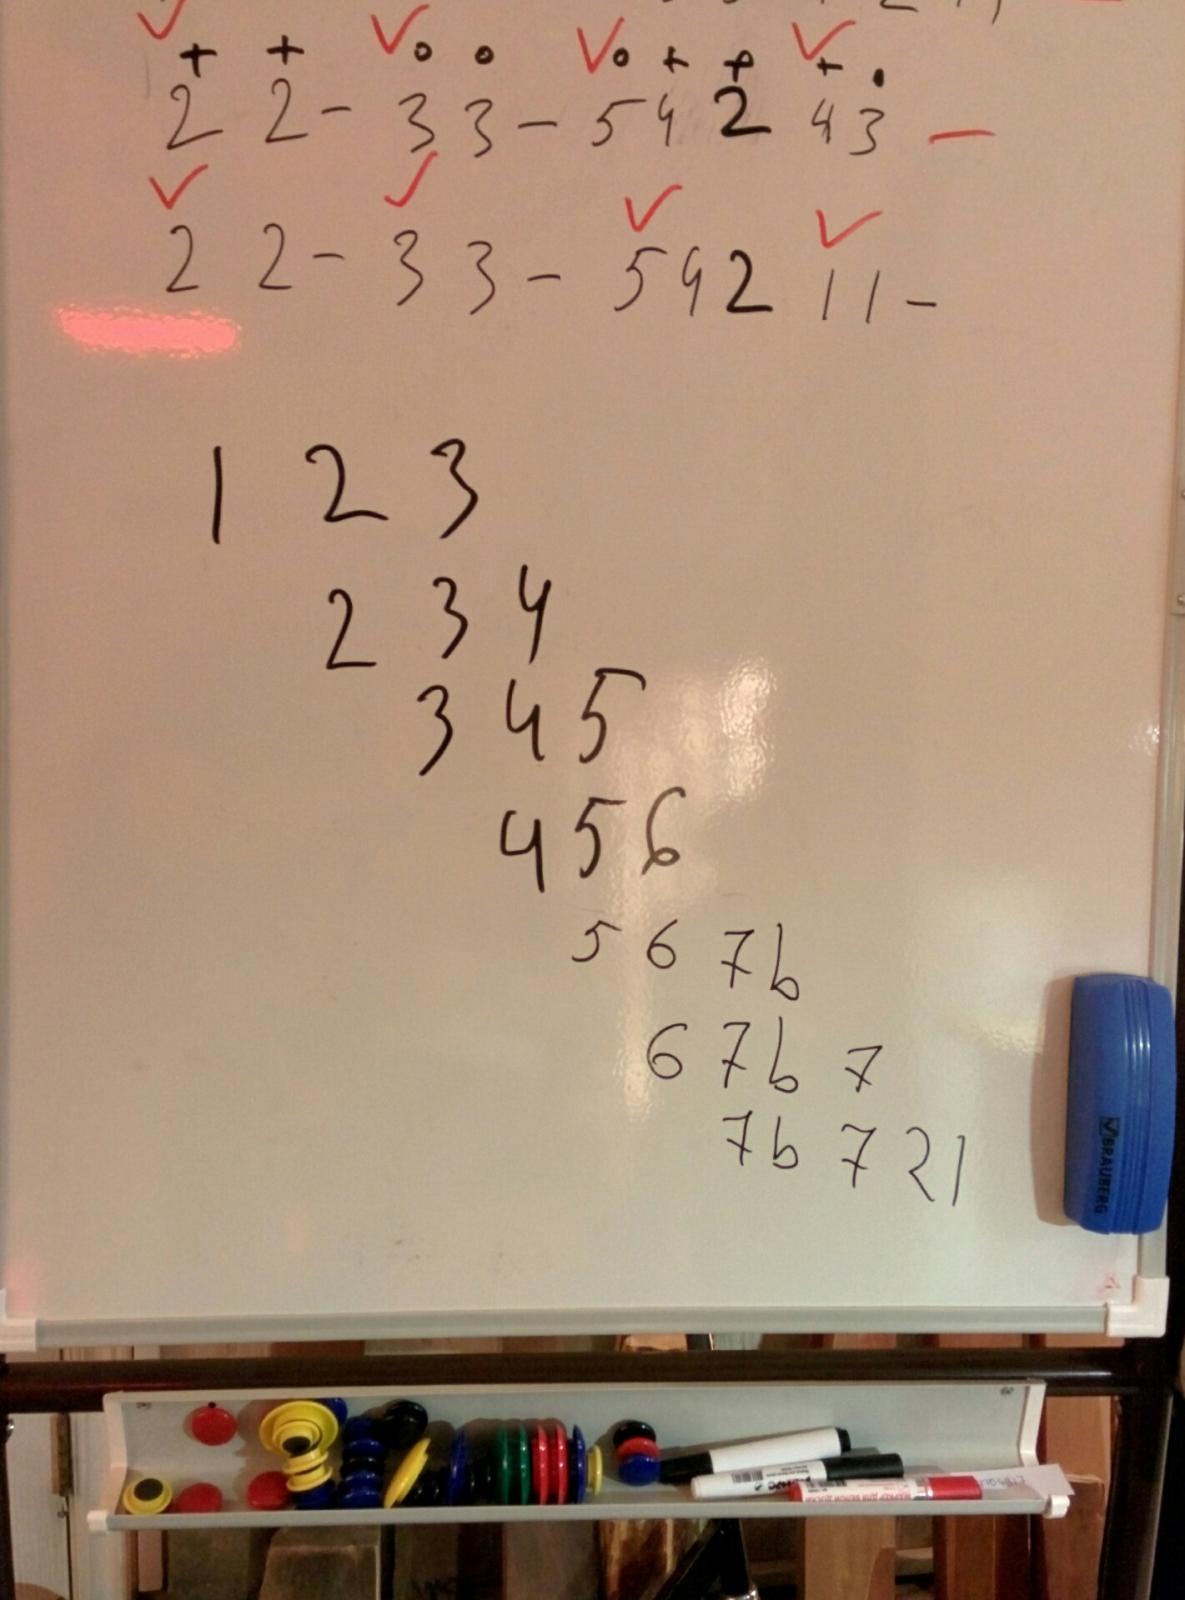 + + o o o + + + .
2 2 - 3 3 - 5 4 2 4 3 -
2 2 - 3 3 - 5 4 2 1 1 -
1 2 3
2 3 4
3 4 5
4 5 6
5 6 7b
6 7b 7
7b 7 21
BRAUBERG